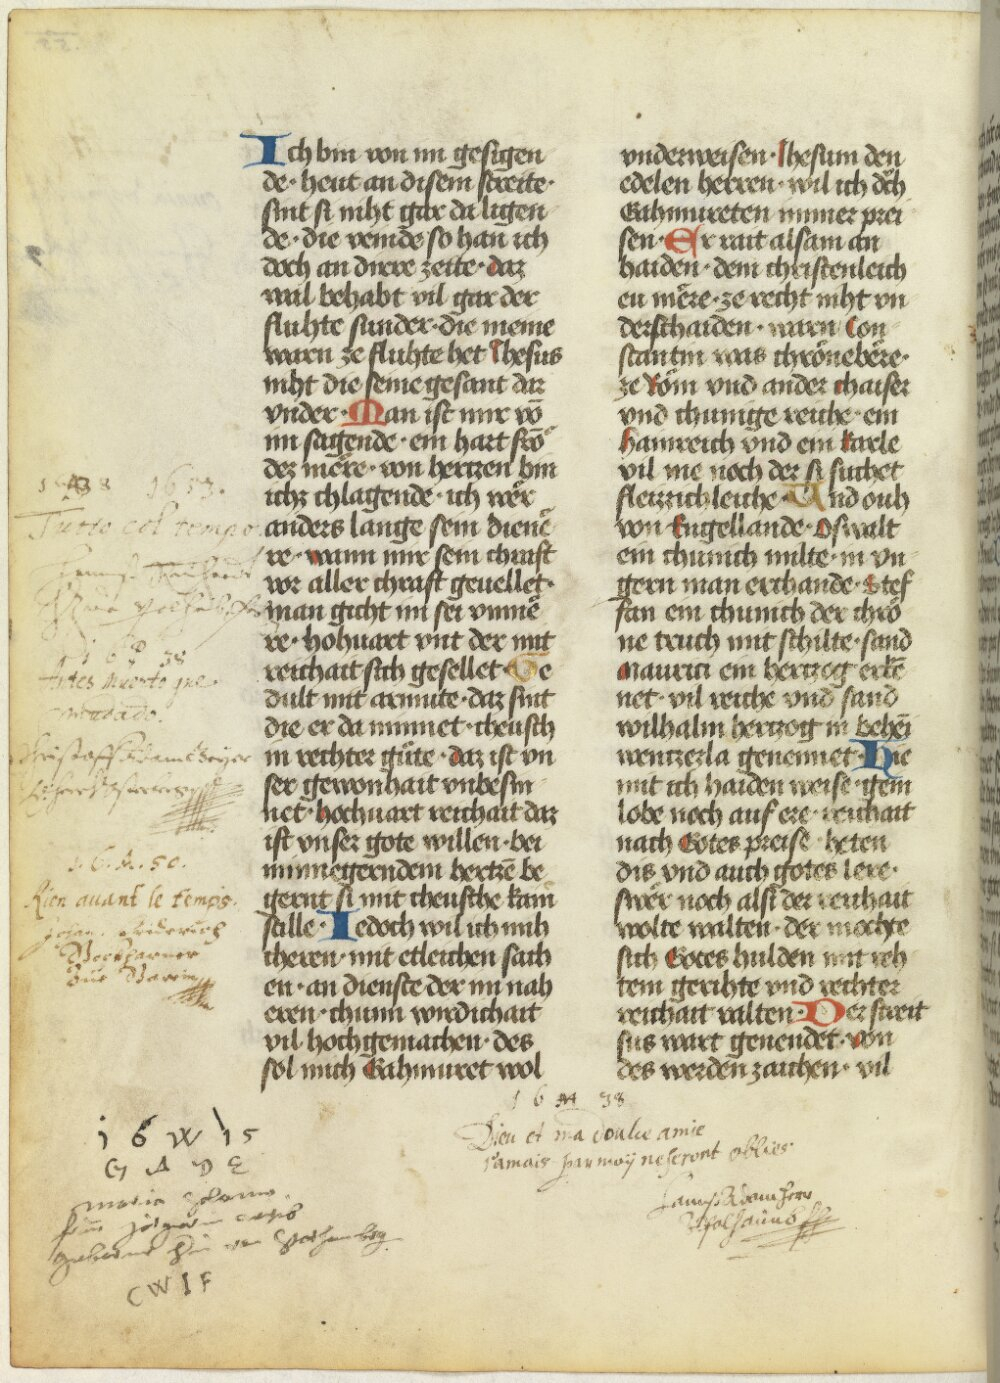 Ich bin von im gesigen
de· heut an disem streite·
sint si niht gar da ligen
de· die veinde so han ich
doch an dirre zeite· daz
wal behabt vil gar der
fluhte sunder· die meine
warn ze fluhte het Jhesus
niht die seine gesant dar
vnder· Man ist mir võ
im sagende· ein hart frö
dez mêre· von hertzen bin
ichz chlagende· ich wêr
anders lange sein diene
re· wann mir sein chraft
vor aller chraft geuellet·
man giht im sei vnmê
re· hohuart vnt der mit
reichait sich gesellet· Ge
dult mit armute· daz sint
die er da minnet· cheusch
in rechter güte· daz ist vn
ser gewonhait vnbesin
net· hochuart reichait daz
ist vnser gote willen· bei
minnegerndem hertzē be
gernt si mit cheusche kain
stille· Iedoch wil ich mih
cheren· mit etleichen sach
en· an dienste der im nah
eren· chunn wirdichait
vil hochgemachen· des
sol mich Gahmuret wol
vnderweisen· Jhesum den
edelen herren· wil ich doch
Gahmureten immer prei
sen· Er rait alsam an
haiden· dem christenleich
en mêre· ze recht niht vn
derschaiden· warn Con
stantin was chrönebêre·
ze Röm vnd ander chaiser
vnd chunige reiche· ein
hainreich vnd ein karle
vil nie noch der si suchet
fleizzichleiche· Und ouh
von Engellande· Oswalt
ein chunich milte· in vn
gern man erchande· Stef
fan ein chunich der chro
ne truch mit schilte· sand
Mauricz ein hertzog erkē
net· vil reiche vnd sand
wilhalm hertzog in behēi
wentzezla genennet· Hie
mit ich haiden weise· gein
lobe noch auf ere· reichait
nach Gotes preise· heten
dis vnd auch gotes lere·
swêr noch alst der reichait
wolte walten· der mochte
sich Gotes hulden mit reh
tem gerihte vnd rechter
reichait valten· Der streit
sus wart genendet· von
des werden zaichen· vil
1653.
Tutto col tempo
16 38
Antes Muerto que
mudado.
Christoff
16 50.
Rien auant le temps.
Johan Friderich
16 W 15
G A D E
Maria
C W I F
16 38
Dieu et ma doulce amie
Jamais par moÿ ne seront oblies